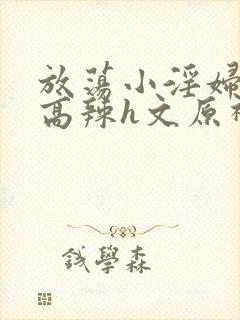 放蕩小淫婦
高辣h文原
钱學森